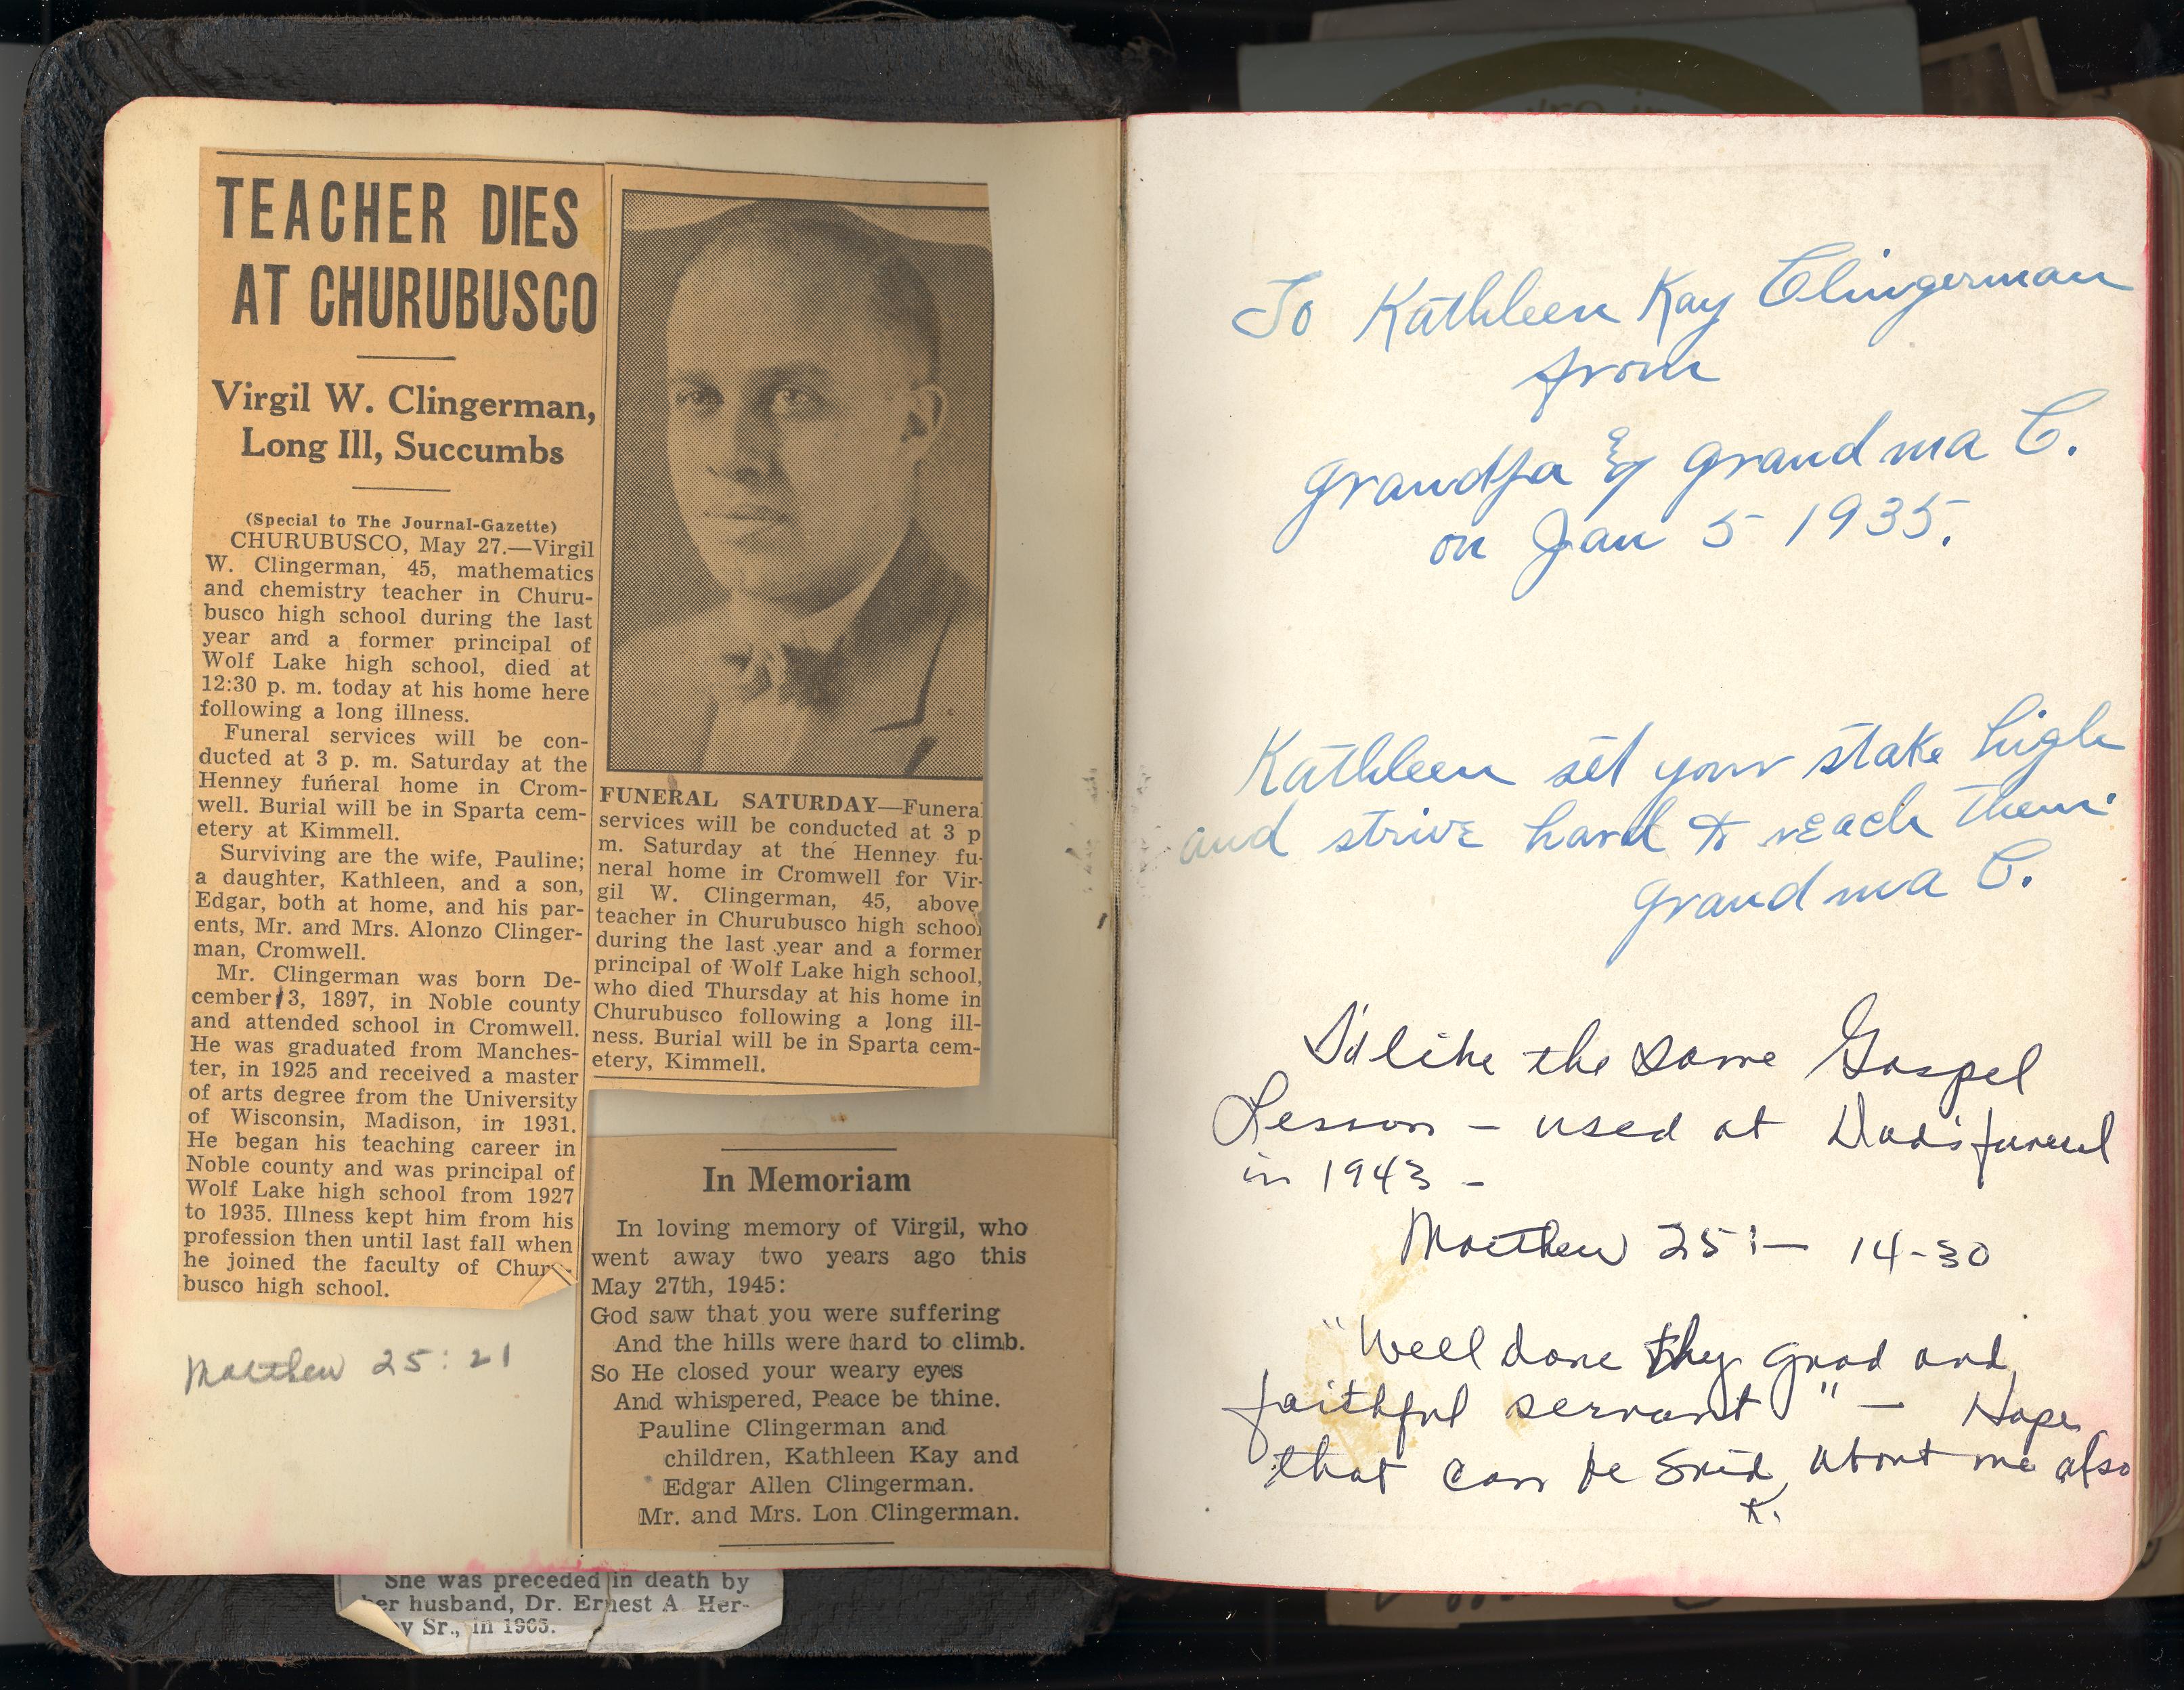 TEACHER DIES
AT CHURUBUSCO
Virgil W. Clingerman,
Long Ill, Succumbs
(Special to The Journal-Gazette)
CHURUBUSCO, May 27.—Virgil
W. Clingerman, 45, mathematics
and chemistry teacher in Churu-
busco high school during the last
year and a former principal of
Wolf Lake high school, died at
12:30 p. m. today at his home here
following a long illness.
Funeral services will be con-
ducted at 3 p. m. Saturday at the
Henney funeral home in Crom-
well. Burial will be in Sparta cem-
etery at Kimmell.
Surviving are the wife, Pauline;
a daughter, Kathleen, and a son,
Edgar, both at home, and his par-
ents, Mr. and Mrs. Alonzo Clinger-
man, Cromwell.
Mr. Clingerman was born De-
cember 13, 1897, in Noble county
and attended school in Cromwell.
He was graduated from Manches-
ter, in 1925 and received a master
of arts degree from the University
of Wisconsin, Madison, in 1931.
He began his teaching career in
Noble county and was principal of
Wolf Lake high school from 1927
to 1935. Illness kept him from his
profession then until last fall when
he joined the faculty of Churu-
busco high school.
Matthew 25:21
FUNERAL SATURDAY—Funeral
services will be conducted at 3 p
m. Saturday at the Henney fu-
neral home in Cromwell for Vir-
gil W. Clingerman, 45, above,
teacher in Churubusco high school
during the last year and a former
principal of Wolf Lake high school,
who died Thursday at his home in
Churubusco following a long ill-
ness. Burial will be in Sparta cem-
etery, Kimmell.
In Memoriam
In loving memory of Virgil, who
went away two years ago this
May 27th, 1945:
God saw that you were suffering
And the hills were hard to climb.
So He closed your weary eyes
And whispered, Peace be thine.
Pauline Clingerman and
children, Kathleen Kay and
Edgar Allen Clingerman.
Mr. and Mrs. Lon Clingerman.
She was preceded in death by
her husband, Dr. Ernest A. Her-
y Sr., in 1965.
To Kathleen Kay Clingerman
from
Grandpa & Grandma C.
on Jan 5 1935.
Kathleen set your stake high
and strive hard to reach them.
Grandma C.
I'd like the same Gospel
Lesson – used at Dad's funeral
in 1943 –
Matthew 25:— 14-30
"Well done thy good and
faithful servant" — Hope
that can be said about me also
K.